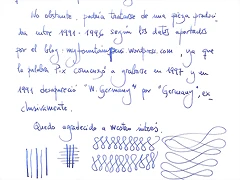 No obstante, podría tratarse de una pieza produci-
da entre 1991 - 1996 según los datos aportados
por el blog: myfountainpens.wordpress.com, ya que
la palabra Pix comenzó a grabarse en 1997 y en
1991 desapareció "W. Germany" por "Germany", ex-
clusivamente.
Quedo agradecido a vuestro interés.